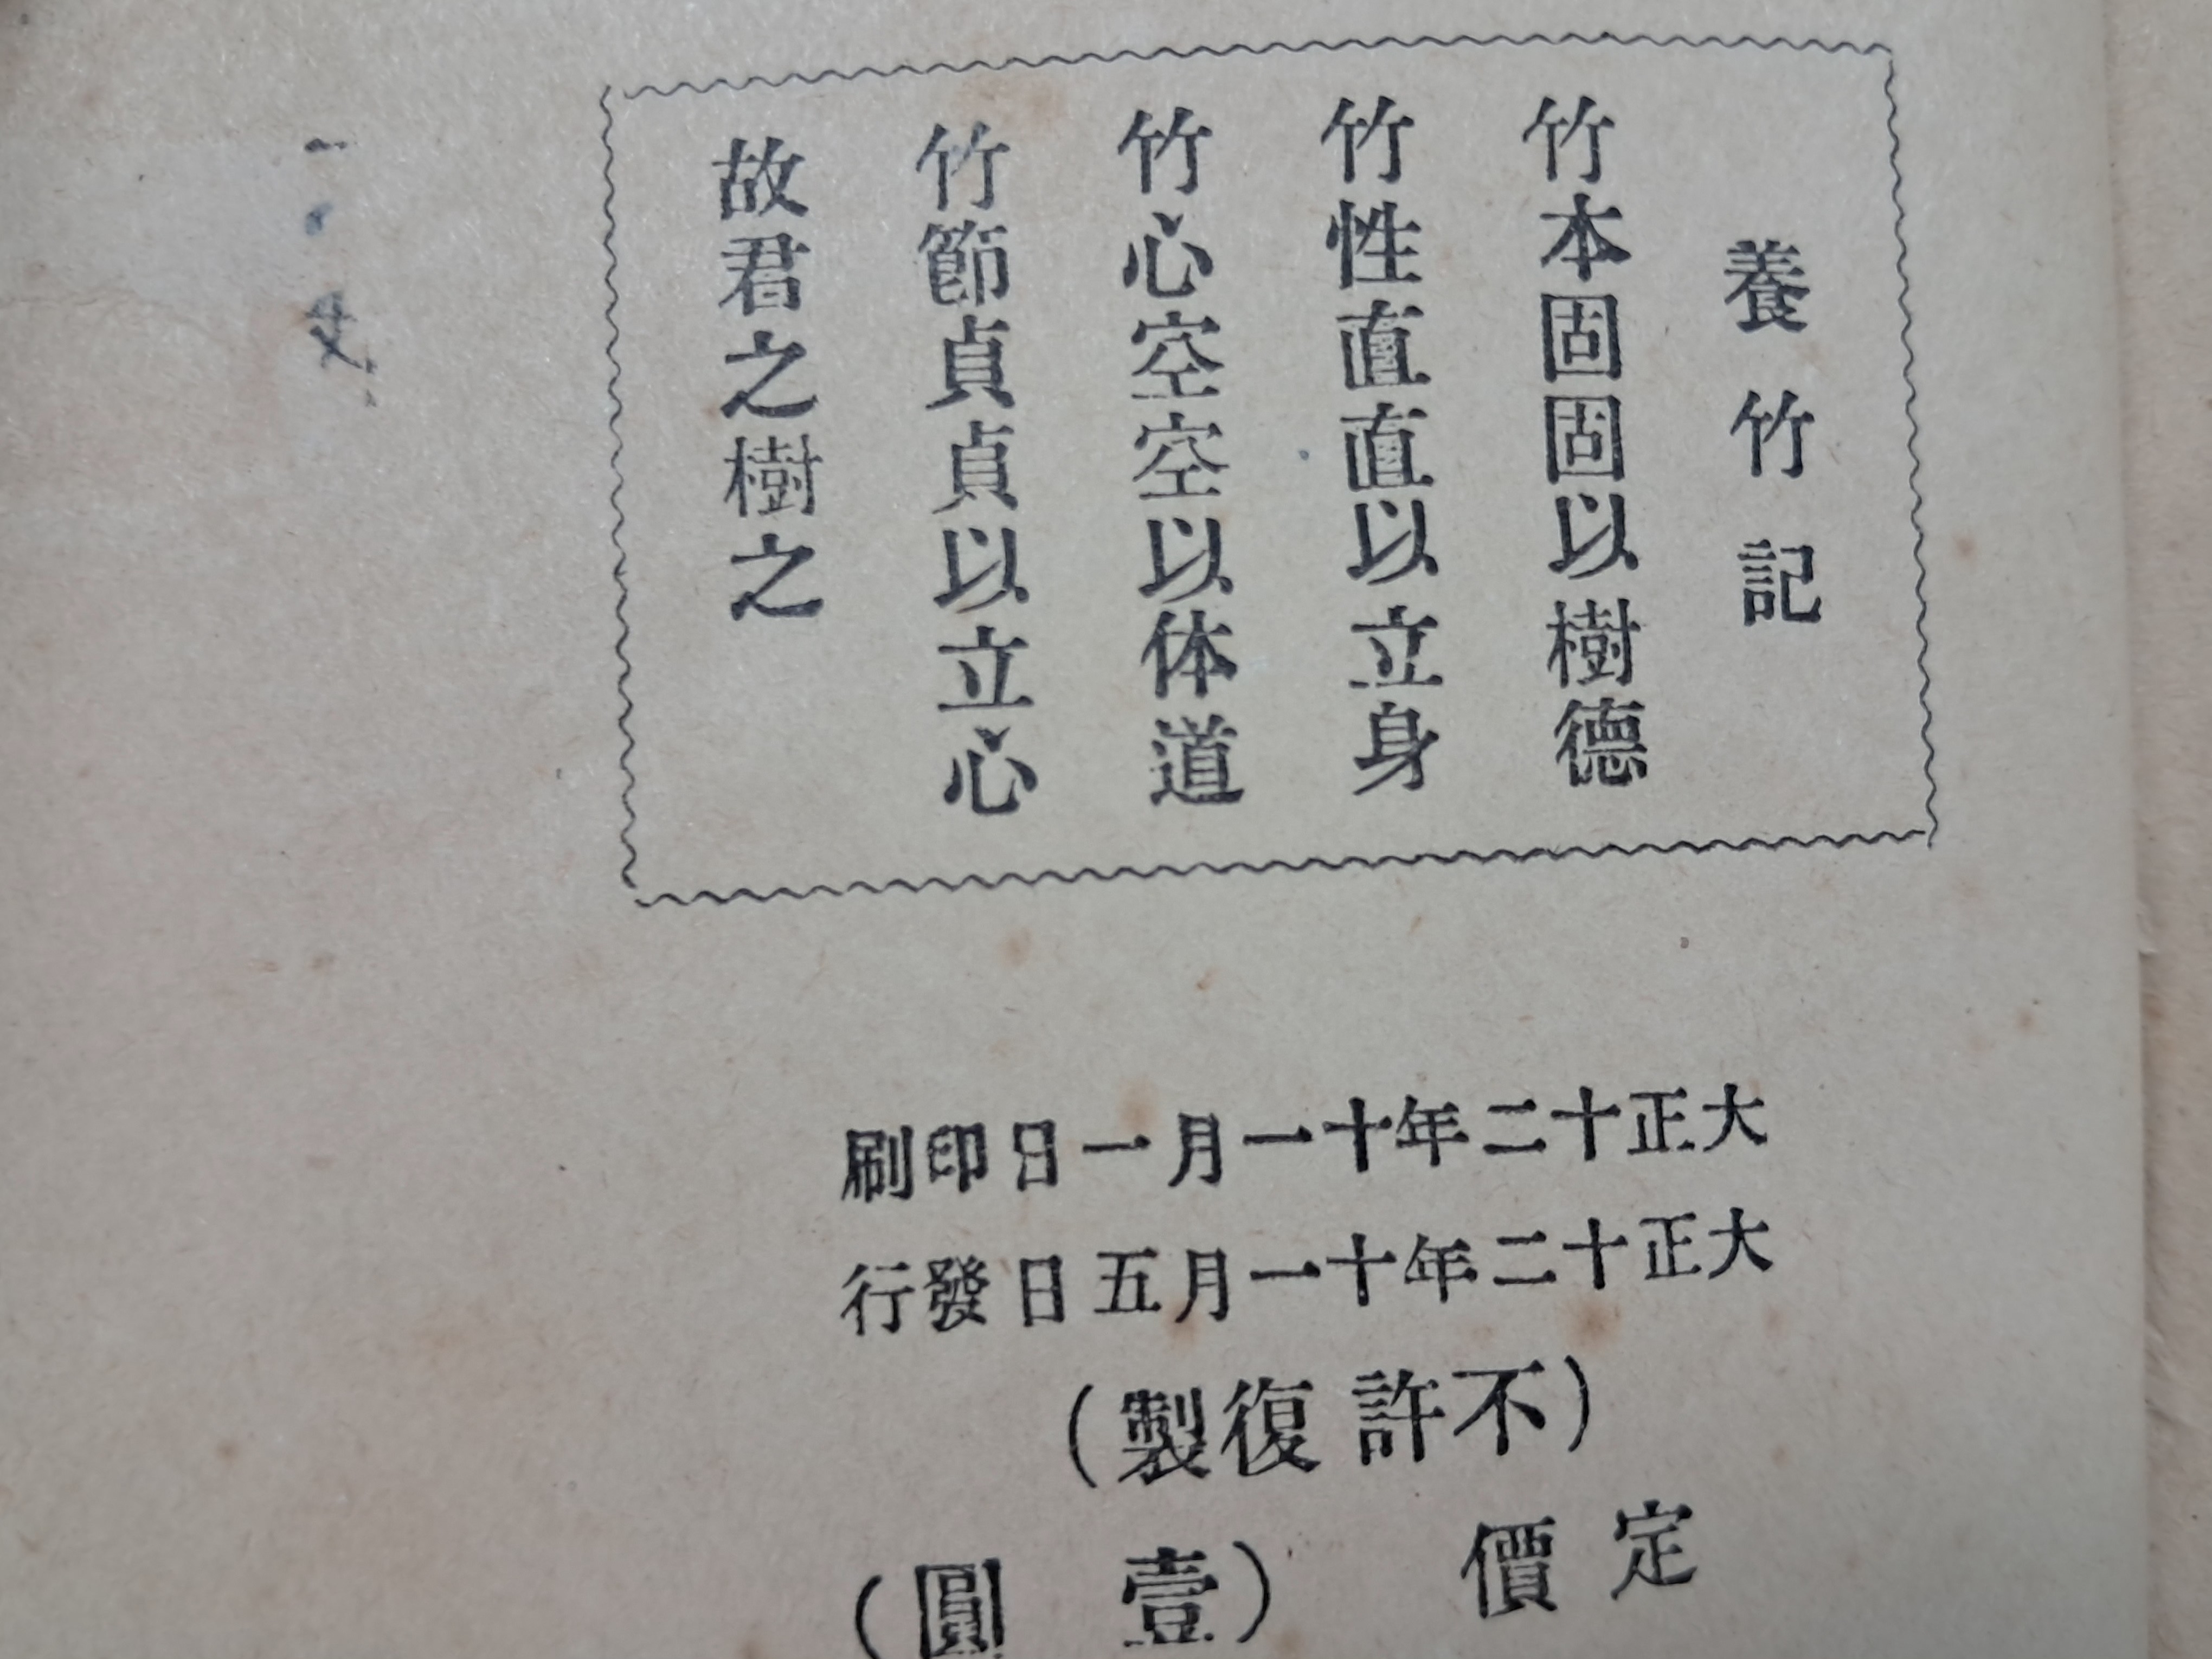 養竹記
竹本固固以樹德
竹性直直以立身
竹心空空以体道
竹節貞貞以立心
故君之樹之
大正十二年十一月一日印刷
大正十二年十一月五日發行
(不許復製)
定價 (壹圓)